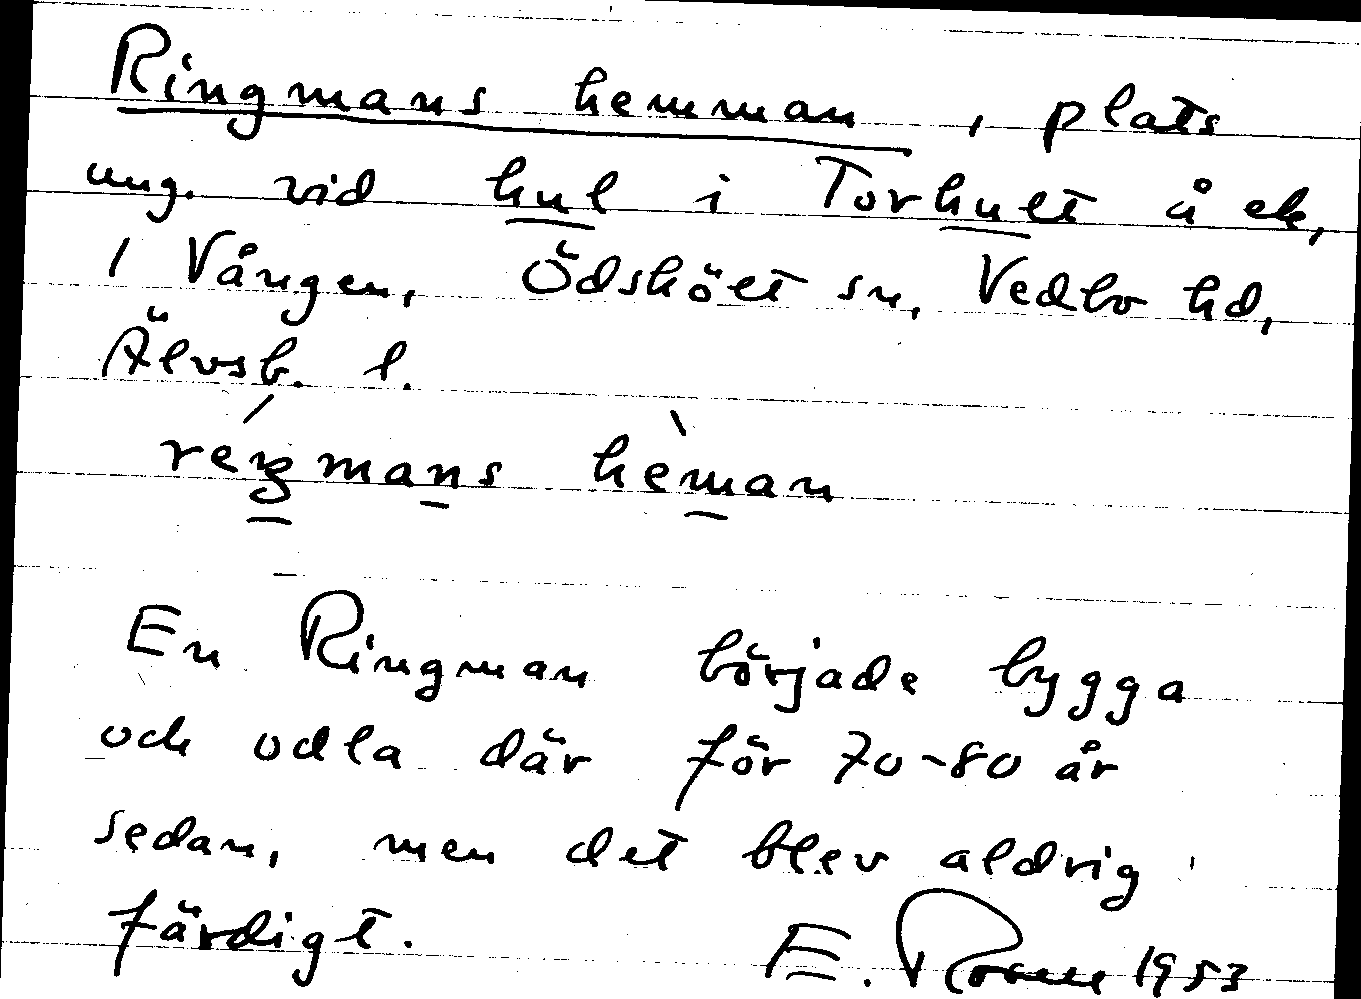 Ringmans hemman, plats
ung. vid hul i Torhult å ek,
1 Vången, Ödskölt sn, Vedbo hd,
Älvsb. l.
réŋmans hèman
En Ringman började bygga
och odla där för 70-80 år
sedan, men det blev aldrig
färdigt.
E. 1953